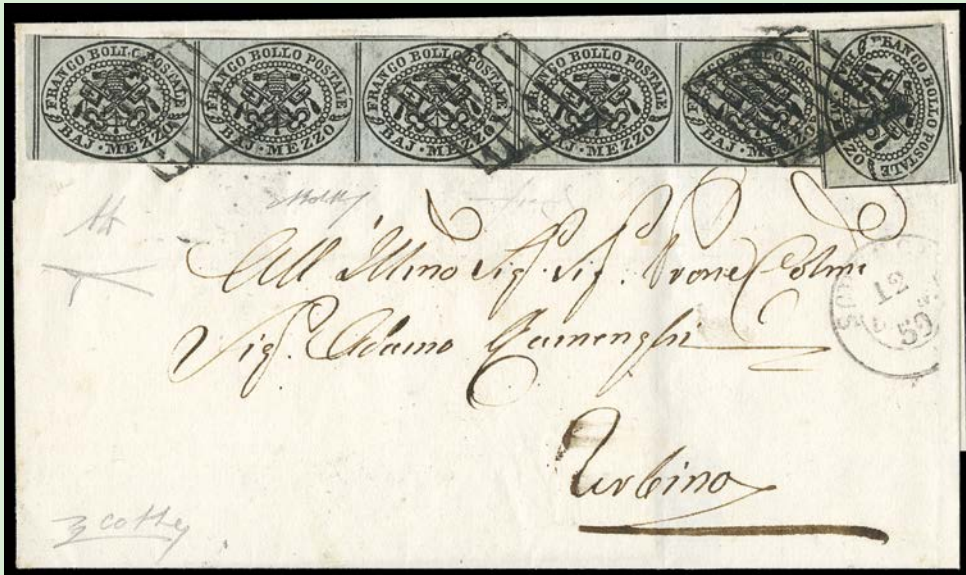 FRANCO BOLLO POSTALE BAJ · MEZZO
FRANCO BOLLO POSTALE BAJ · MEZZO
FRANCO BOLLO POSTALE BAJ · MEZZO
FRANCO BOLLO POSTALE BAJ · MEZZO
FRANCO BOLLO POSTALE BAJ · MEZZO
FRANCO BOLLO POSTALE
All' Illmo Sig. Sig. Prone Colmo
Sig. Adamo
Urbino
12
59